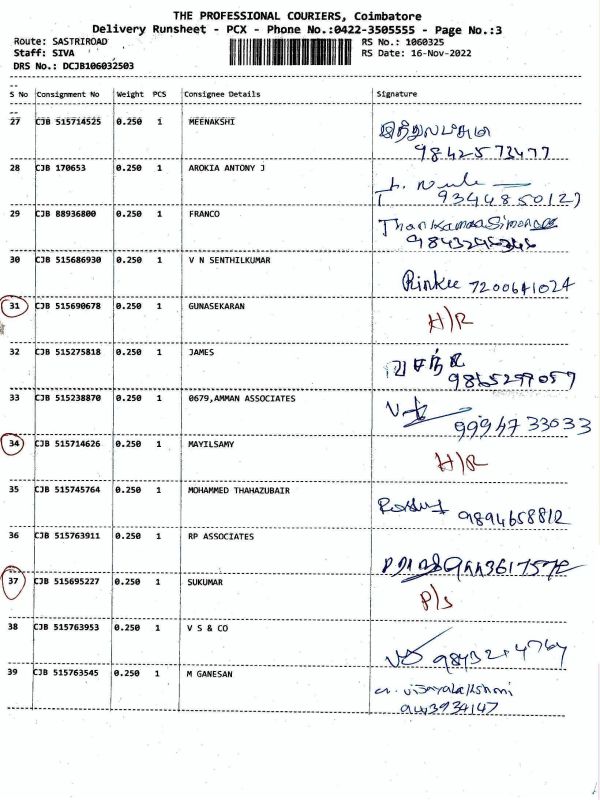 THE PROFESSIONAL COURIERS, Coimbatore
Delivery Runsheet - PCX - Phone No.:0422-3505555 - Page No.:3
Route: SASTRIROAD RS No.: 1060325
Staff: SIVA RS Date: 16-Nov-2022
DRS No.: DCJB106032503
S No Consignment No Weight PCS Consignee Details Signature
27 CJB 515714525 0.250 1 MEENAKSHI
9842573477
28 CJB 170653 0.250 1 AROKIA ANTONY J
9344850127
29 CJB 88936800 0.250 1 FRANCO
30 CJB 515686930 0.250 1 V N SENTHILKUMAR
Rinkee 7200641024
31 CJB 515690678 0.250 1 GUNASEKARAN
H/R
32 CJB 515275818 0.250 1 JAMES
9865297057
33 CJB 515238870 0.250 1 0679,AMMAN ASSOCIATES
9994733033
34 CJB 515714626 0.250 1 MAYILSAMY
H/R
35 CJB 515745764 0.250 1 MOHAMMED THAHAZUBAIR
9894658812
36 CJB 515763911 0.250 1 RP ASSOCIATES
37 CJB 515695227 0.250 1 SUKUMAR
P/S
38 CJB 515763953 0.250 1 V S & CO
39 CJB 515763545 0.250 1 M GANESAN
vijayalakshmi
9443934147